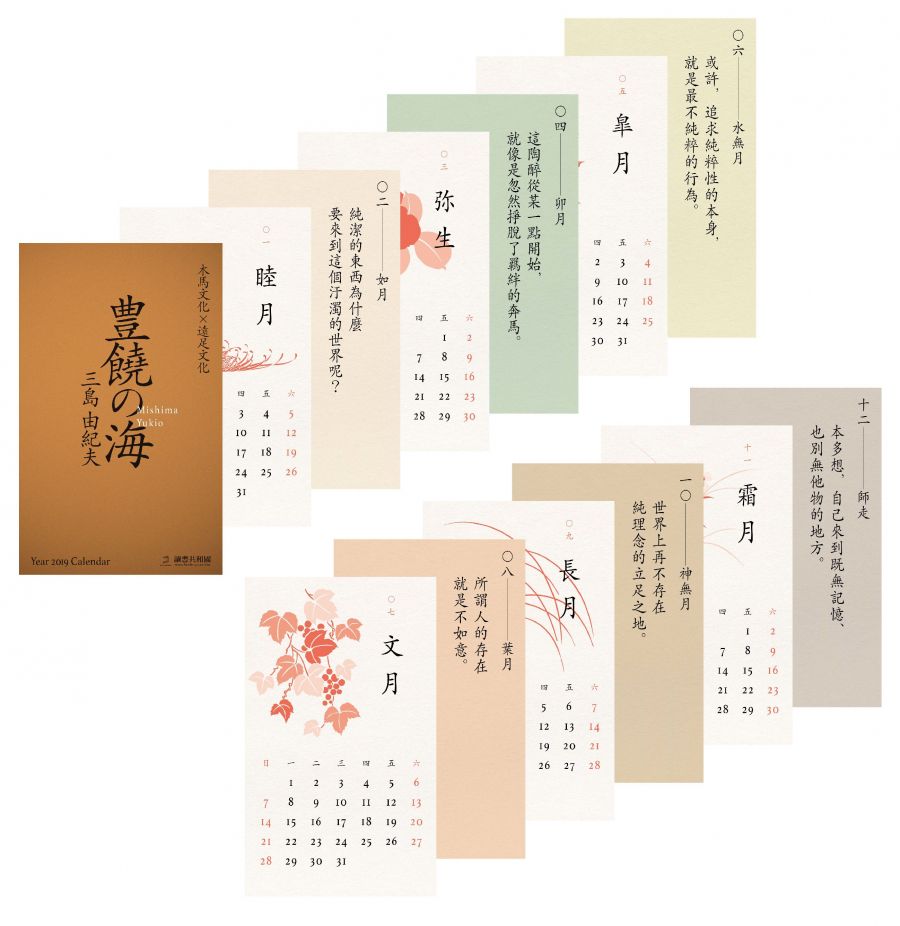 木馬文化×遠足文化
豊饒の海
三島由紀夫
Mishima
Yukio
Year 2019 Calendar
讀書共和國
〇一
睦月
四 五 六
3 4 5
10 11 12
17 18 19
24 25 26
31
〇二——如月
純潔的東西為什麼
要來到這個汙濁的世界呢？
〇三
弥生
四 五 六
1 2
7 8 9
14 15 16
21 22 23
28 29 30
〇四——卯月
這陶醉從某一點開始，
就像是忽然掙脫了羈絆的奔馬。
〇五
皐月
四 五 六
2 3 4
9 10 11
16 17 18
23 24 25
30 31
〇六——水無月
或許，追求純粹性的本身，
就是最不純粹的行為。
〇七
文月
日 一 二 三 四 五 六
1 2 3 4 5 6
7 8 9 10 11 12 13
14 15 16 17 18 19 20
21 22 23 24 25 26 27
28 29 30 31
〇八——葉月
所謂人的存在
就是不如意。
〇九
長月
四 五 六
5 6 7
12 13 14
19 20 21
26 27 28
一〇——神無月
世界上再不存在
純理念的立足之地。
十一
霜月
四 五 六
1 2
7 8 9
14 15 16
21 22 23
28 29 30
十二——師走
本多想，自己來到既無記憶、
也別無他物的地方。